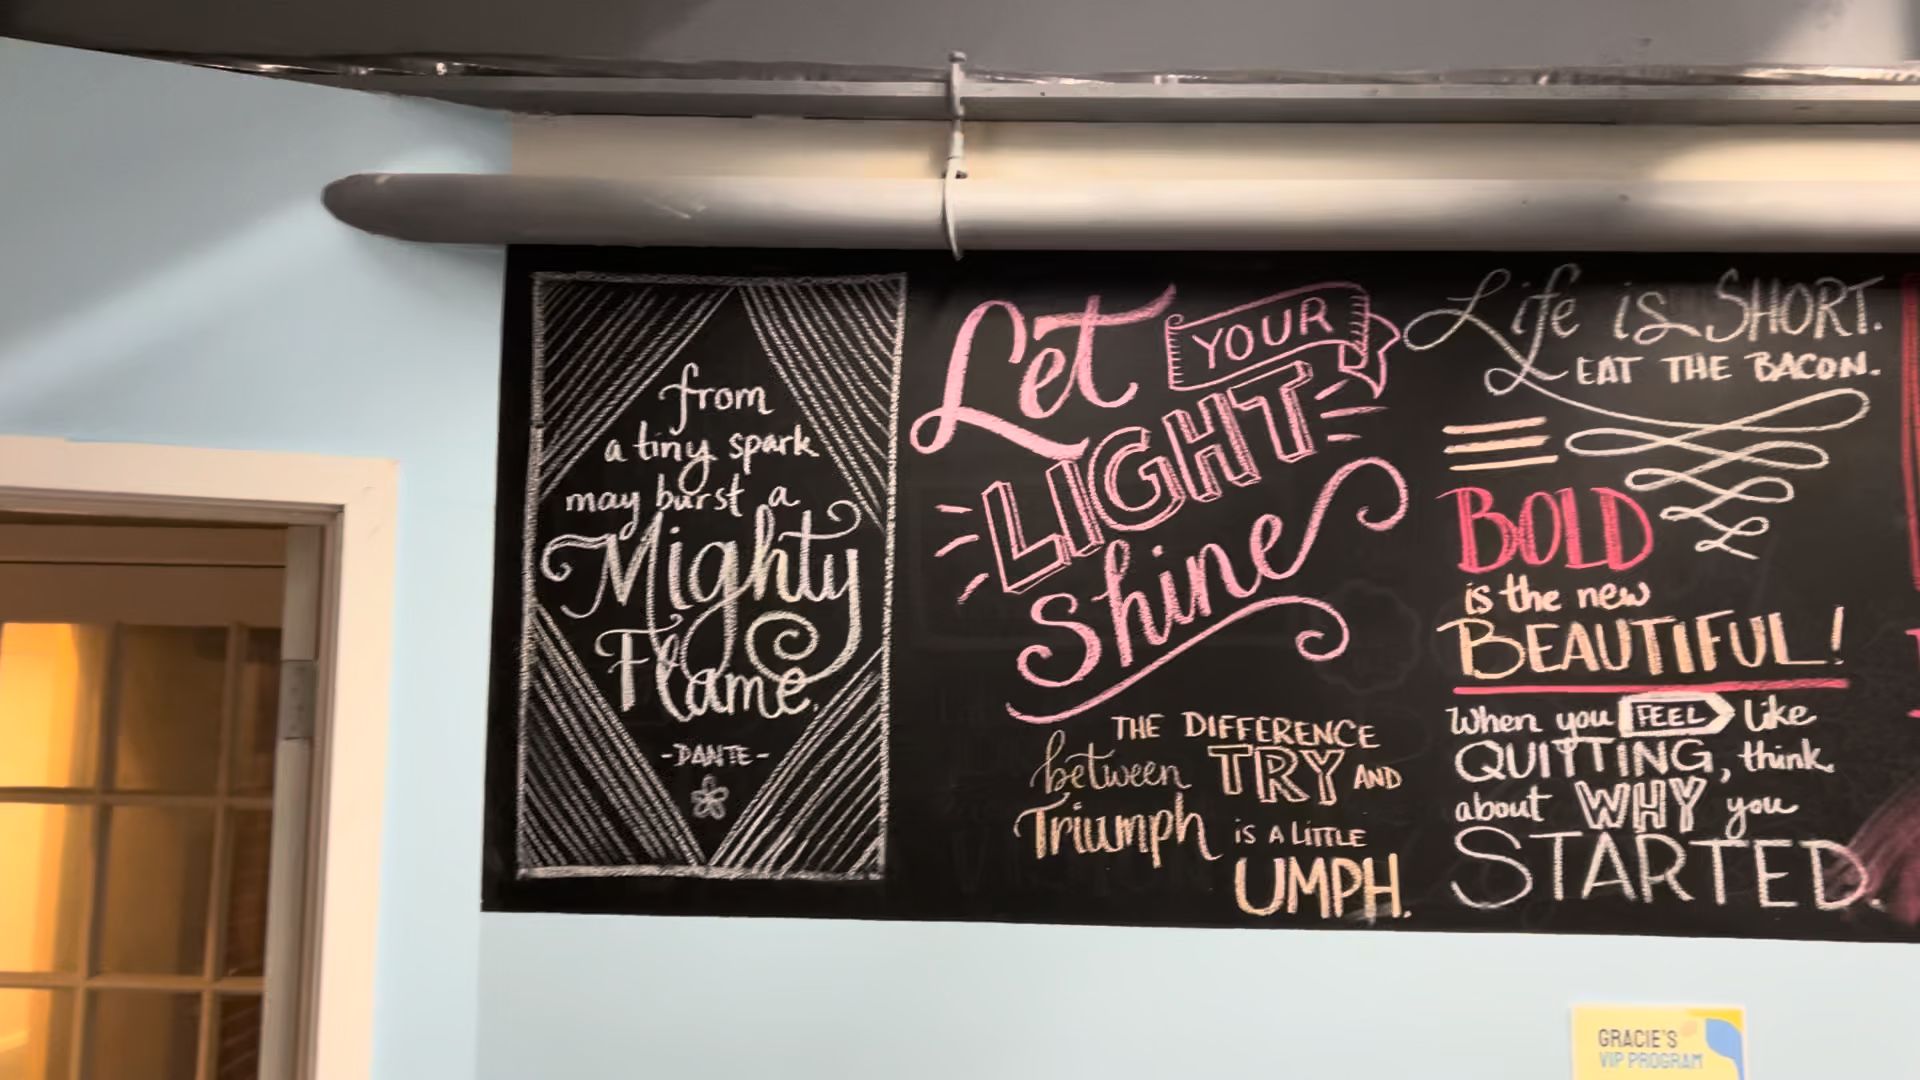 from
a tiny spark
may burst a
Mighty
Flame.
-DANTE-
Let YOUR
LIGHT
Shine
THE DIFFERENCE
between TRY AND
Triumph IS A LITTLE
UMPH.
Life is SHORT.
EAT THE BACON.
BOLD
is the new
BEAUTIFUL!
When you FEEL like
QUITTING, think
about WHY you
STARTED.
GRACIE'S
VIP PROGRAM